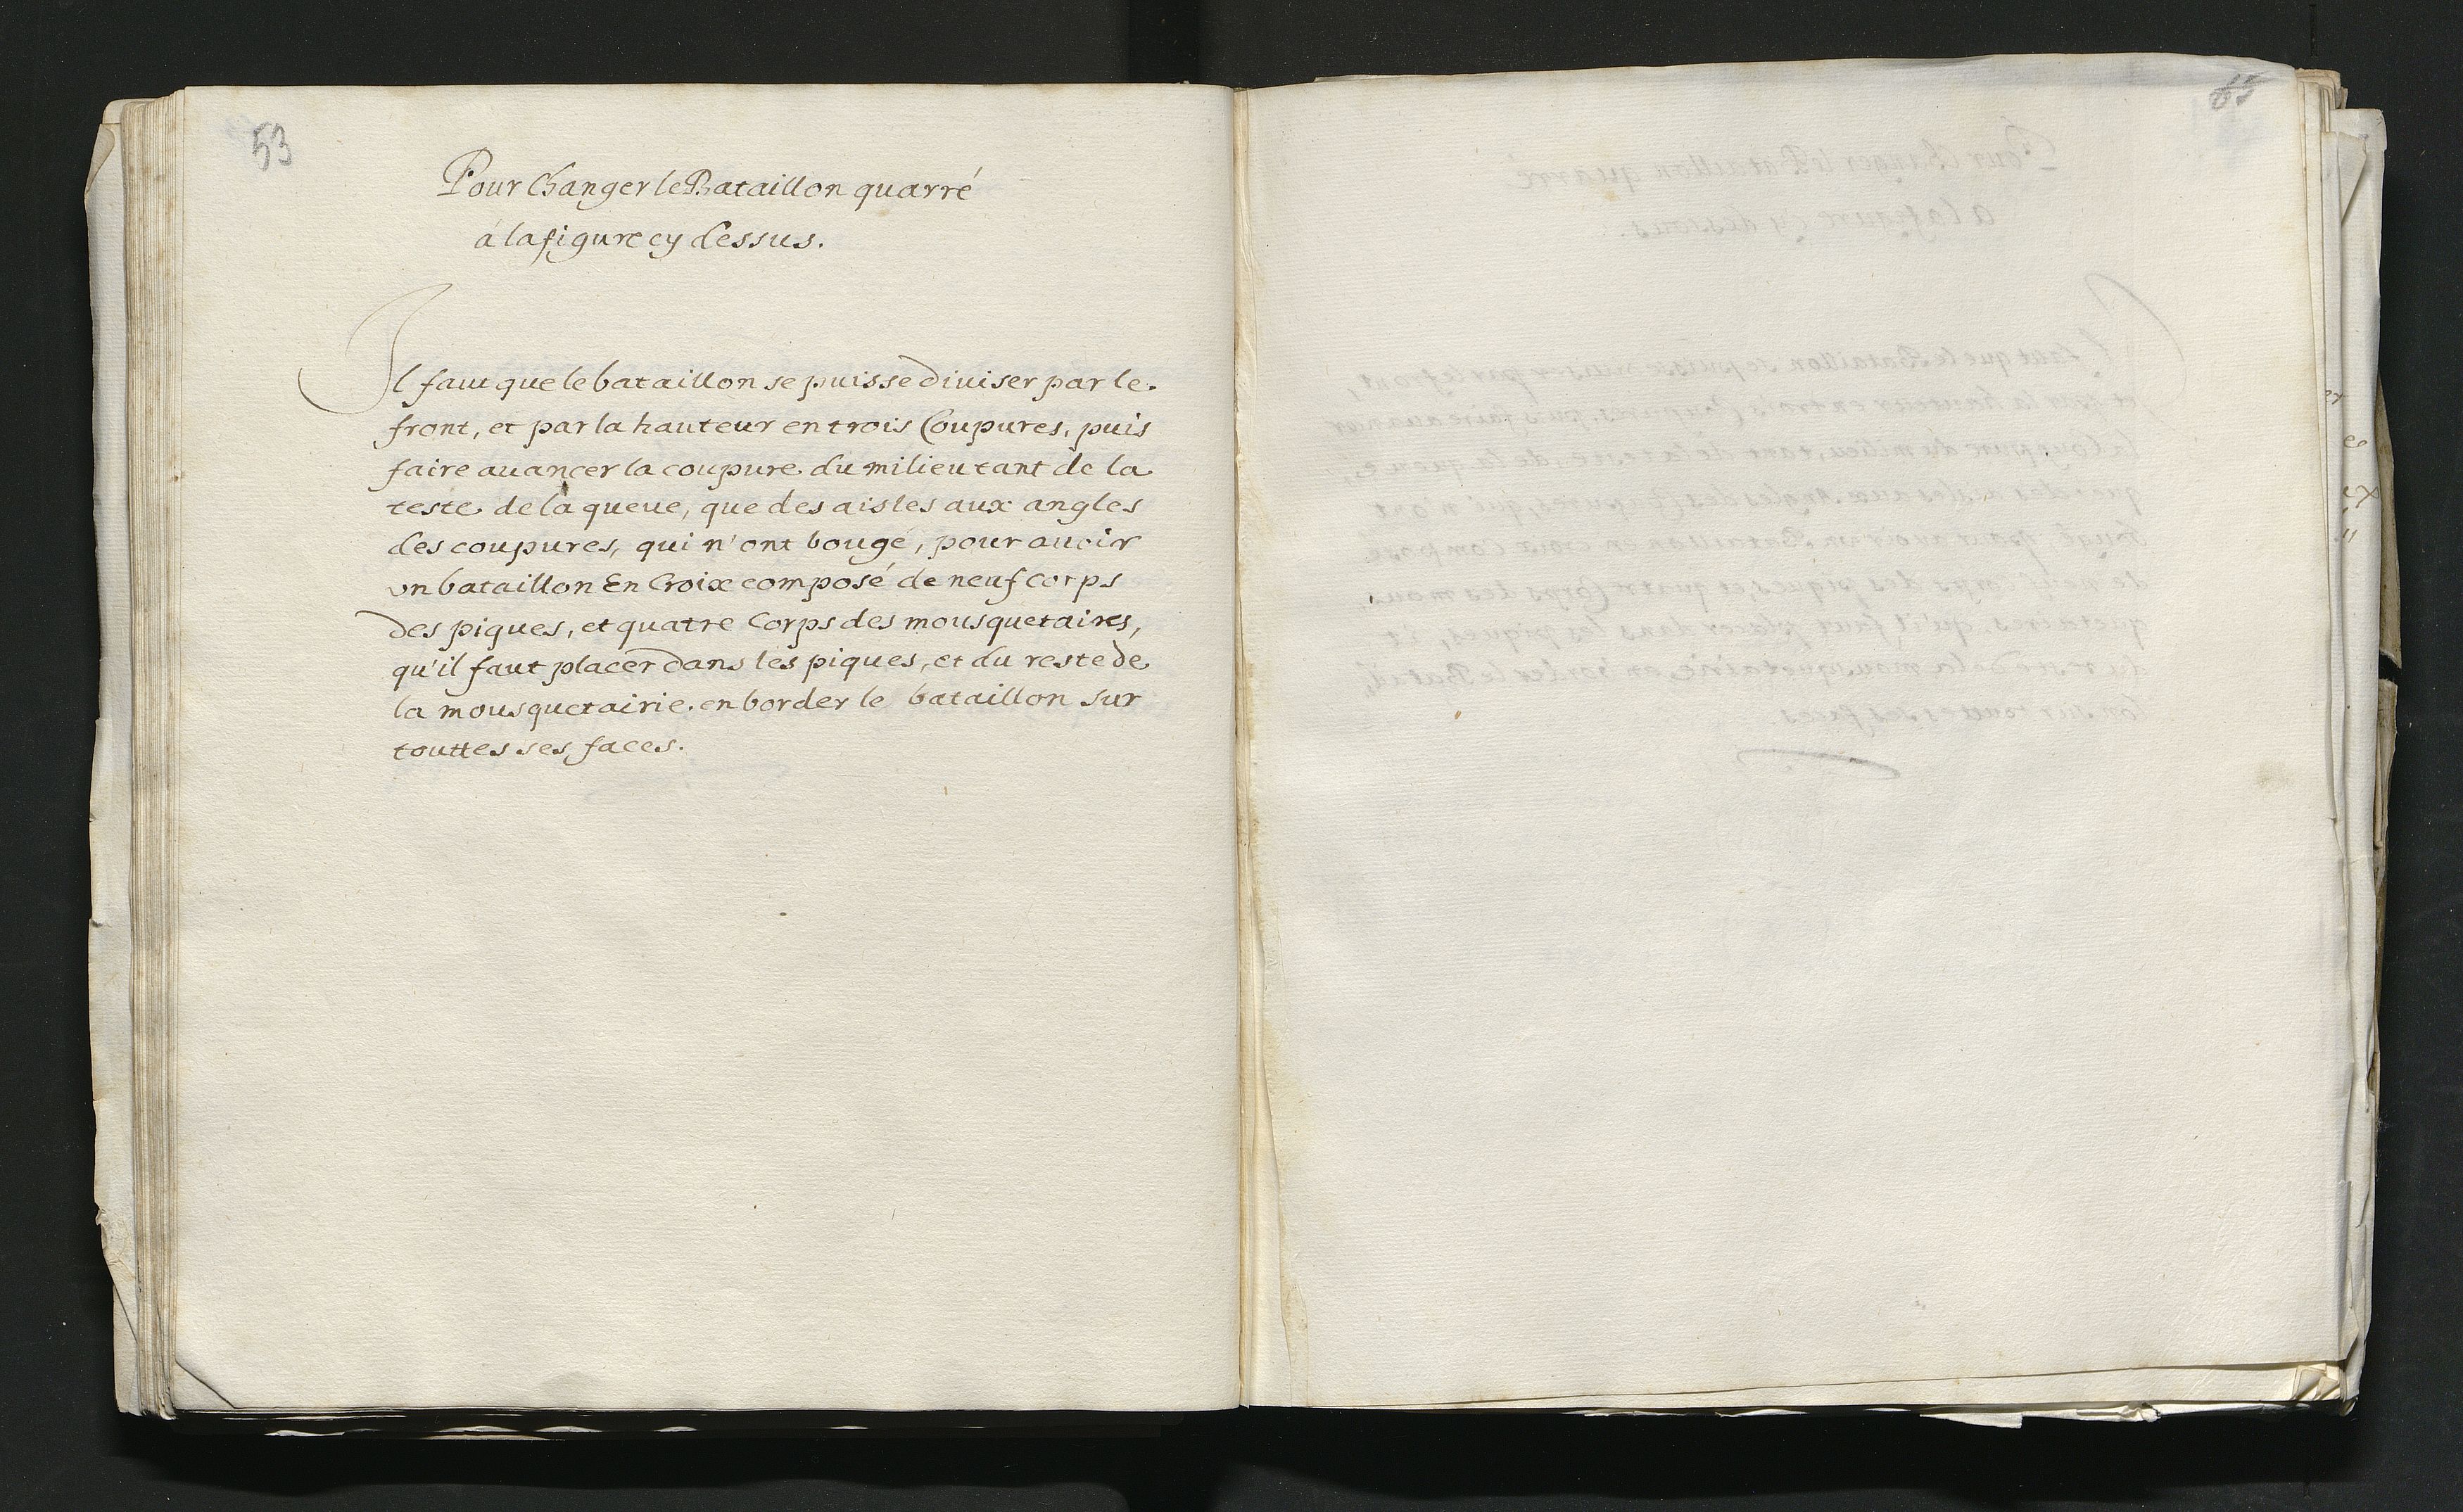 53
Pour Changer le Bataillon quarré
à la figure cy dessus.
Il faut que le bataillon se puisse diuiser par le
front, et par la hauteur en trois Coupures, puis
faire auancer la coupure du milieu tant de la
teste de la queue, que des aisles aux angles
des coupures, qui n'ont bougé, pour auoir
vn bataillon En Croix composé de neuf corps
des piques, et quatre Corps des mousquetaires,
qu'il faut placer dans les piques, et du reste de
la mousquetairie en border le bataillon sur
touttes ses faces.